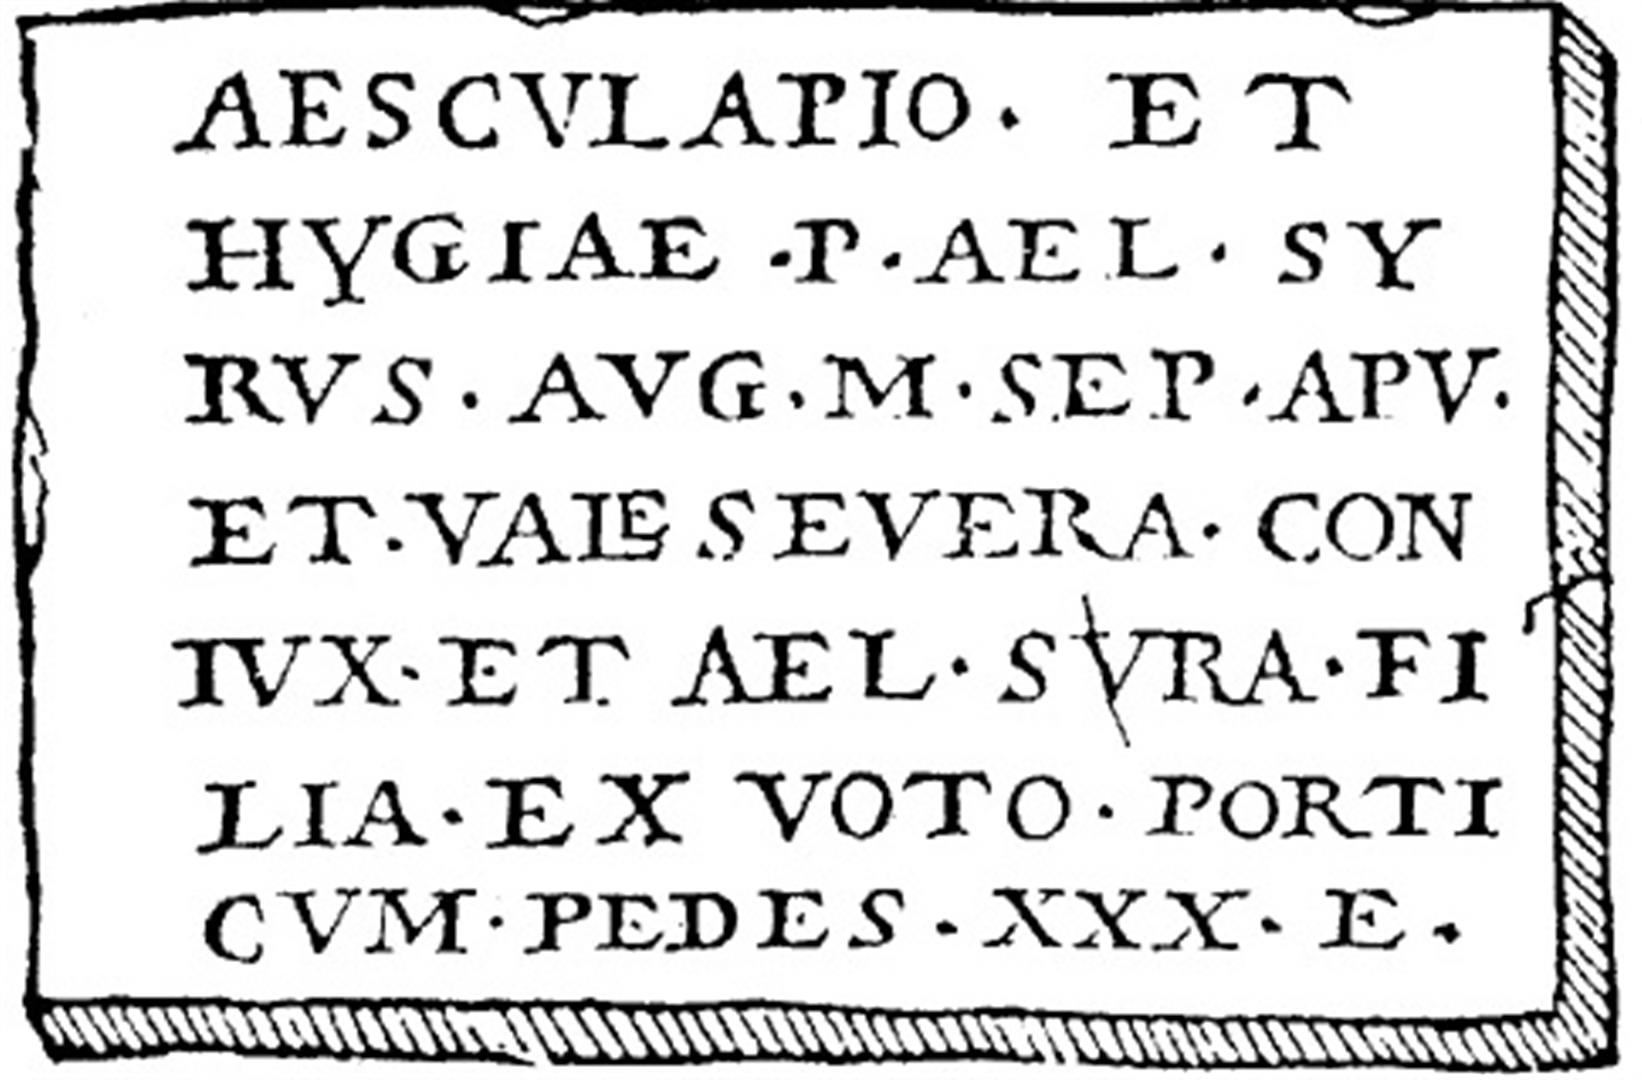 AESCVLAPIO · ET
HYGIAE · P · AEL · SY
RVS · AVG · M · SEP · APV ·
ET · VALE SEVERA · CON
IVX · ET AEL · SVRA · FI
LIA · EX VOTO · PORTI
CVM · PEDES · XXX · E ·